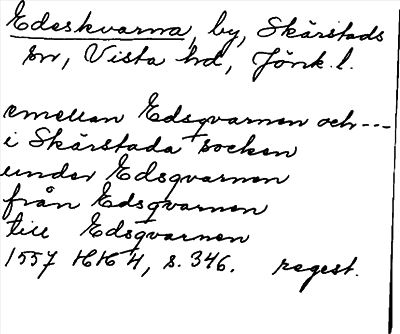 Edeskvarna, by, Skärstads
sn, Vista hd, Jönk. l.
emellan Edsqvarnen och ---
i Skärstada socken
under Edsqvarnen
från Edsqvarnen
till Edsqvarnen
1557 HK 4, s. 346. regest.